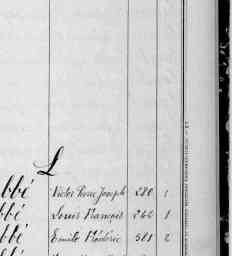 L
bbé Victor Pierre Joseph 280 1
bbé Louis François 266 1
bbé Emile Frédéric 501 2